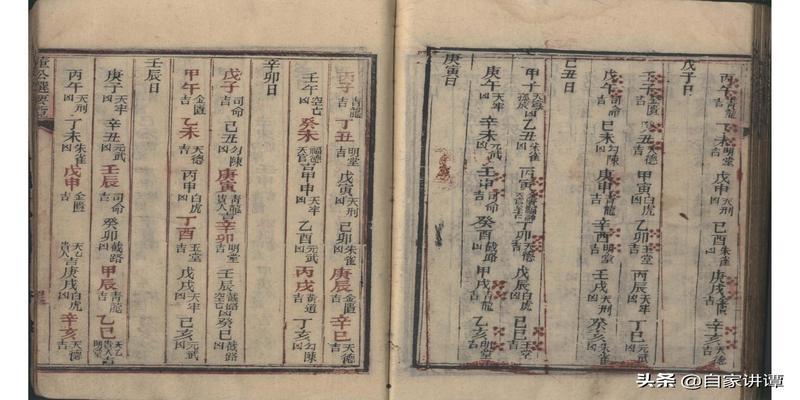 丙午吉 丁未明堂吉 戊申天刑凶 己酉朱雀凶 庚戌金匱吉 辛亥天德吉
戊子日
壬子金匱吉 癸丑天德吉 甲寅白虎凶 乙卯玉堂吉 丙辰天牢凶 丁巳元武凶
戊午吉 己未勾陳凶 庚申青龍吉 辛酉明堂吉 壬戌天刑凶 癸亥朱雀凶
己丑日
甲子 乙丑朱雀凶 丙寅 丁卯天德吉 戊辰白虎凶 己巳玉堂吉
庚午天牢凶 辛未元武凶 壬申司命吉 癸酉截路凶 甲戌青龍吉 乙亥明堂吉
庚寅日
丙子青龍吉 丁丑明堂吉 戊寅天刑凶 己卯朱雀凶 庚辰金匱吉 辛巳天德吉
壬午空亡凶 癸未福德天官吉 甲申天牢凶 乙酉元武凶 丙戌黃道吉 丁亥勾陳凶
辛卯日
戊子司命吉 己丑勾陳凶 庚寅青龍貴人吉 辛卯明堂吉 壬辰截路空亡凶 癸巳截路凶
甲午金匱吉 乙未天德吉 丙申白虎凶 丁酉玉堂吉 戊戌天牢凶 己亥元武凶
壬辰日
庚子天牢凶 辛丑元武凶 壬辰司命吉 癸卯截路凶 甲辰青龍吉 乙巳天乙貴人明堂
丙午天刑凶 丁未朱雀凶 戊申金匱吉 天乙貴人吉 庚戌白虎凶 辛亥天德吉
董公選要覽
头条 @自家讲谭